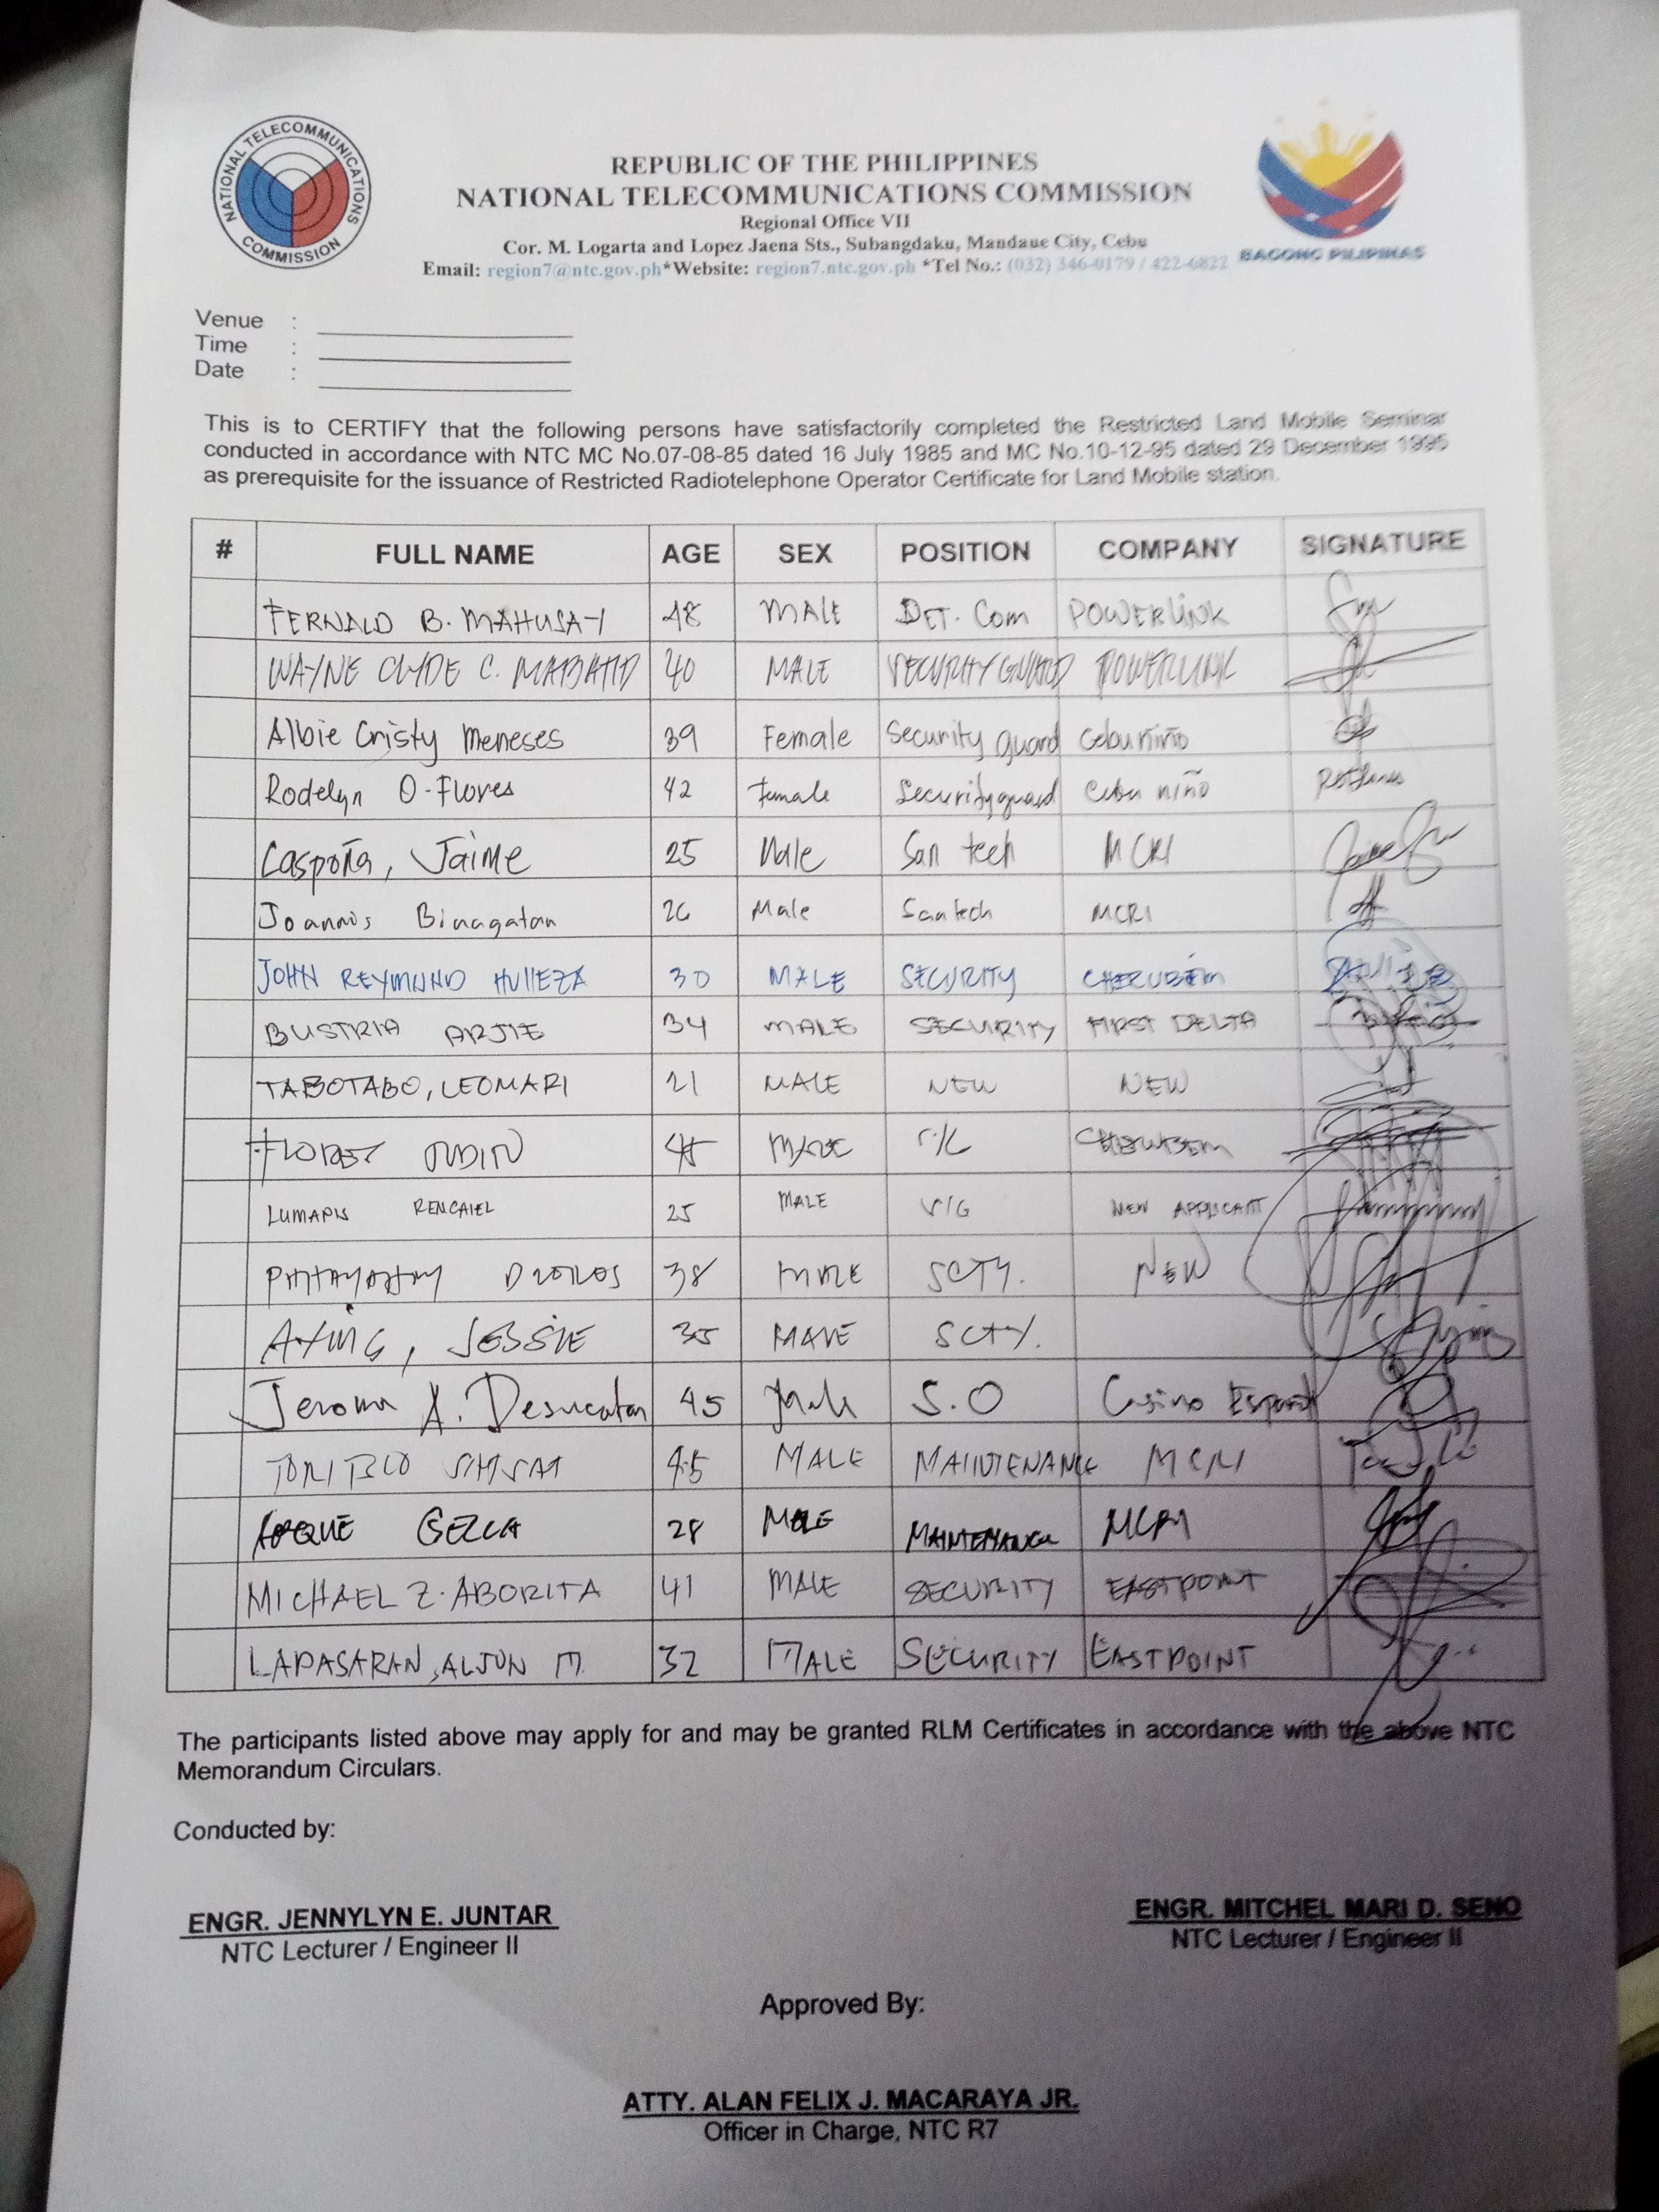 NATIONAL TELECOMMUNICATIONS COMMISSION
REPUBLIC OF THE PHILIPPINES
NATIONAL TELECOMMUNICATIONS COMMISSION
Regional Office VII
Cor. M. Logarta and Lopez Jaena Sts., Subangdaku, Mandaue City, Cebu
Email: region7@ntc.gov.ph*Website: region7.ntc.gov.ph *Tel No.: (032) 346-0179 / 422-6822
BAGONG PILIPINAS
Venue :
Time :
Date :
This is to CERTIFY that the following persons have satisfactorily completed the Restricted Land Mobile Seminar
conducted in accordance with NTC MC No.07-08-85 dated 16 July 1985 and MC No.10-12-95 dated 29 December 1995
as prerequisite for the issuance of Restricted Radiotelephone Operator Certificate for Land Mobile station.
# FULL NAME AGE SEX POSITION COMPANY SIGNATURE
FERNALD B. MAHUSAY 48 MALE DET. Com POWERLINK
WAYNE CLYDE C. 40 MALE SECURITY GUARD POWERLINK
Albie Cristy Meneses 39 Female Security guard Cebu niño
Rodelyn O. Flores 42 Female Security guard Cebu niño
Caspoña, Jaime 25 Male San tech MCRI
Joannis Binagatan 26 Male San tech MCRI
JOHN REYMUND HULLEZA 30 MALE SECURITY CHERUBIM
BUSTRIA ARJIE 34 MALE SECURITY FIRST DELTA
TABOTABO, LEOMARI 21 MALE NEW NEW
MALE CHERUBIM
RENCAIEL 25 MALE S/G NEW APPLICANT
38 MALE SCTY. NEW
AYING, JESSIE 35 MALE SCTY.
Jerome A. Desucatan 45 Male S.O Casino Español
45 MALE MAINTENANCE MCRI
28 MALE MAINTENANCE MCRI
MICHAEL Z. ABORITA 41 MALE SECURITY EASTPOINT
LAPASARAN, ALJUN M. 32 MALE SECURITY EASTPOINT
The participants listed above may apply for and may be granted RLM Certificates in accordance with the above NTC
Memorandum Circulars.
Conducted by:
ENGR. JENNYLYN E. JUNTAR
NTC Lecturer / Engineer II
ENGR. MITCHEL MARI D. SENO
NTC Lecturer / Engineer II
Approved By:
ATTY. ALAN FELIX J. MACARAYA JR.
Officer in Charge, NTC R7